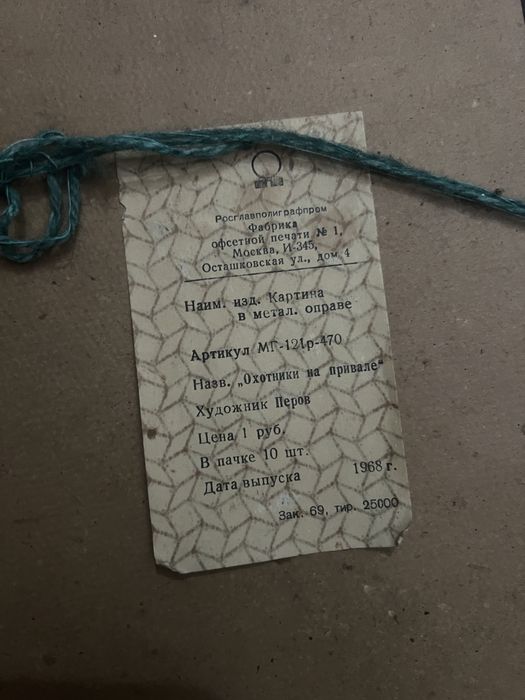 Росглавполиграфпром
Фабрика
офсетной печати № 1,
Москва, И-345,
Осташковская ул., дом 4
Наим. изд. Картина
в метал. оправе
Артикул МГ-121р-470
Назв. „Охотники на привале“
Художник Перов
Цена 1 руб.
В пачке 10 шт.
Дата выпуска 1968 г.
Зак. 69, тир. 25000